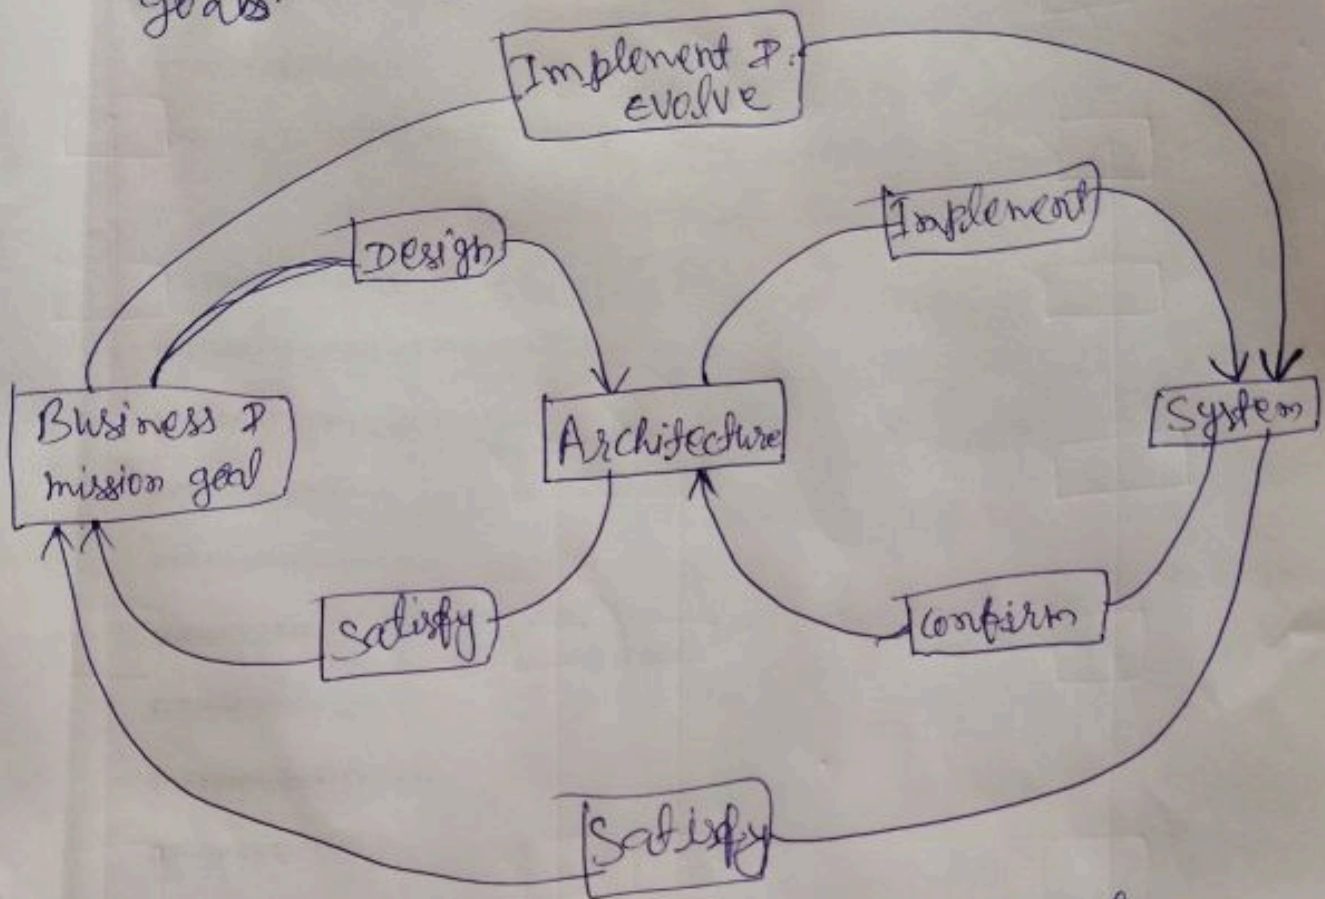 goals.
Implement &
evolve
Implement
Design
Business &
mission goal
Architecture
System
Satisfy
Confirm
Satisfy